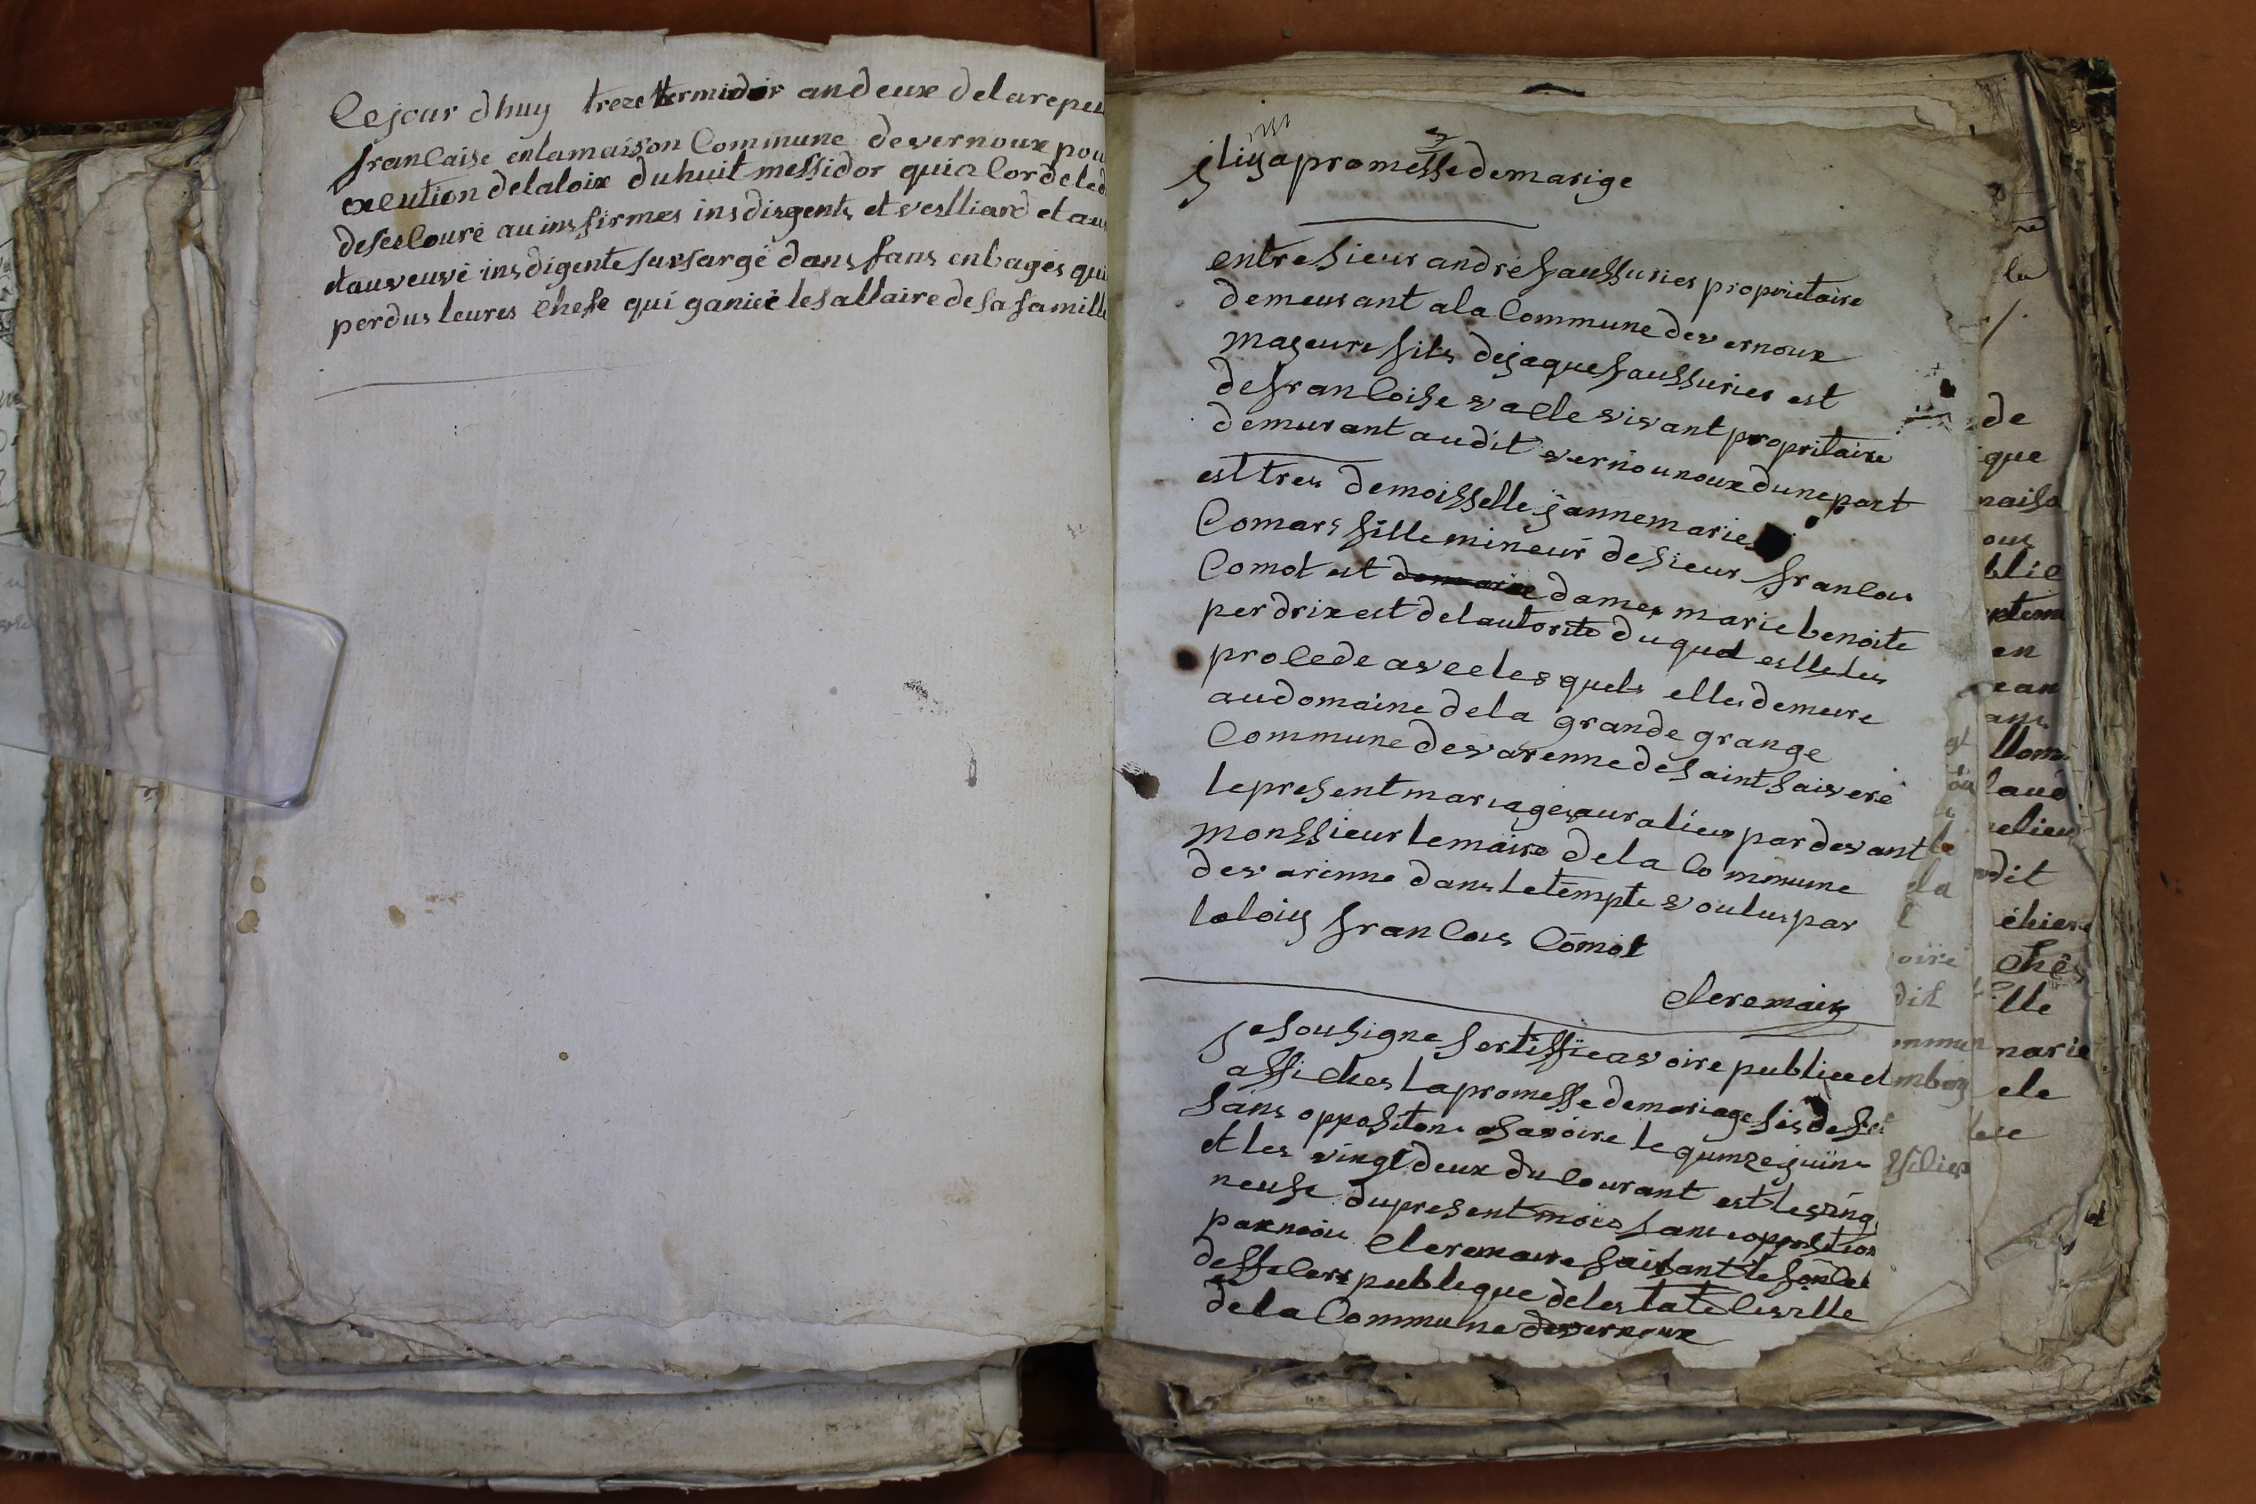 Cejour dhuy treze termidor andeux delarepeu
francaise enlamaison Commune devernoux pou
execution delaloix duhuit messidor quia Cordeled
desecLouré auinsfirmes insdisgents et vesLliard et au
etauveuve insdigente sursargé dans fans enbages qui
perdus leures Chefe qui ganiié lesallaire desafamille
iliya promesse demarige
entre sieur andré faussuries proprietaire
demeurant ala Commune devernoux
mageure fils dejaque faussuries est
defrancoise valle vivant propritaire
demurant audit vernounoux dunepart
esttres demoisselle jannemarie
Comars fille mineur desieur francois
Comot est dames marie benoite
perdrix est delautorité duquel ellelus
procede aveclesquels elles demeure
audomaine dela grande grange
Commune devarenne desaintsaiveré
lepresentmariages auralieux pardevant
monssieur lemaire dela Commune
devarinne dans letempts voulus par
laloiy francois Comot
Cleremair
Jesousigne sertiffie avoire publiee et
affiches lapromesse demariage sisdesu
sans oppositons asavoire le quinze juin
et les vingt deux du Courant est lesving
neufe dupresentmois sans opposition
parmoi Cleremaire faisantte
deffCiers publique delestate Civille
dela Commune devernoux
de
que
naiso
ous
blié
ptem
en
ean
ans
lau
elieu
dit
Chés
ille
marie
ele